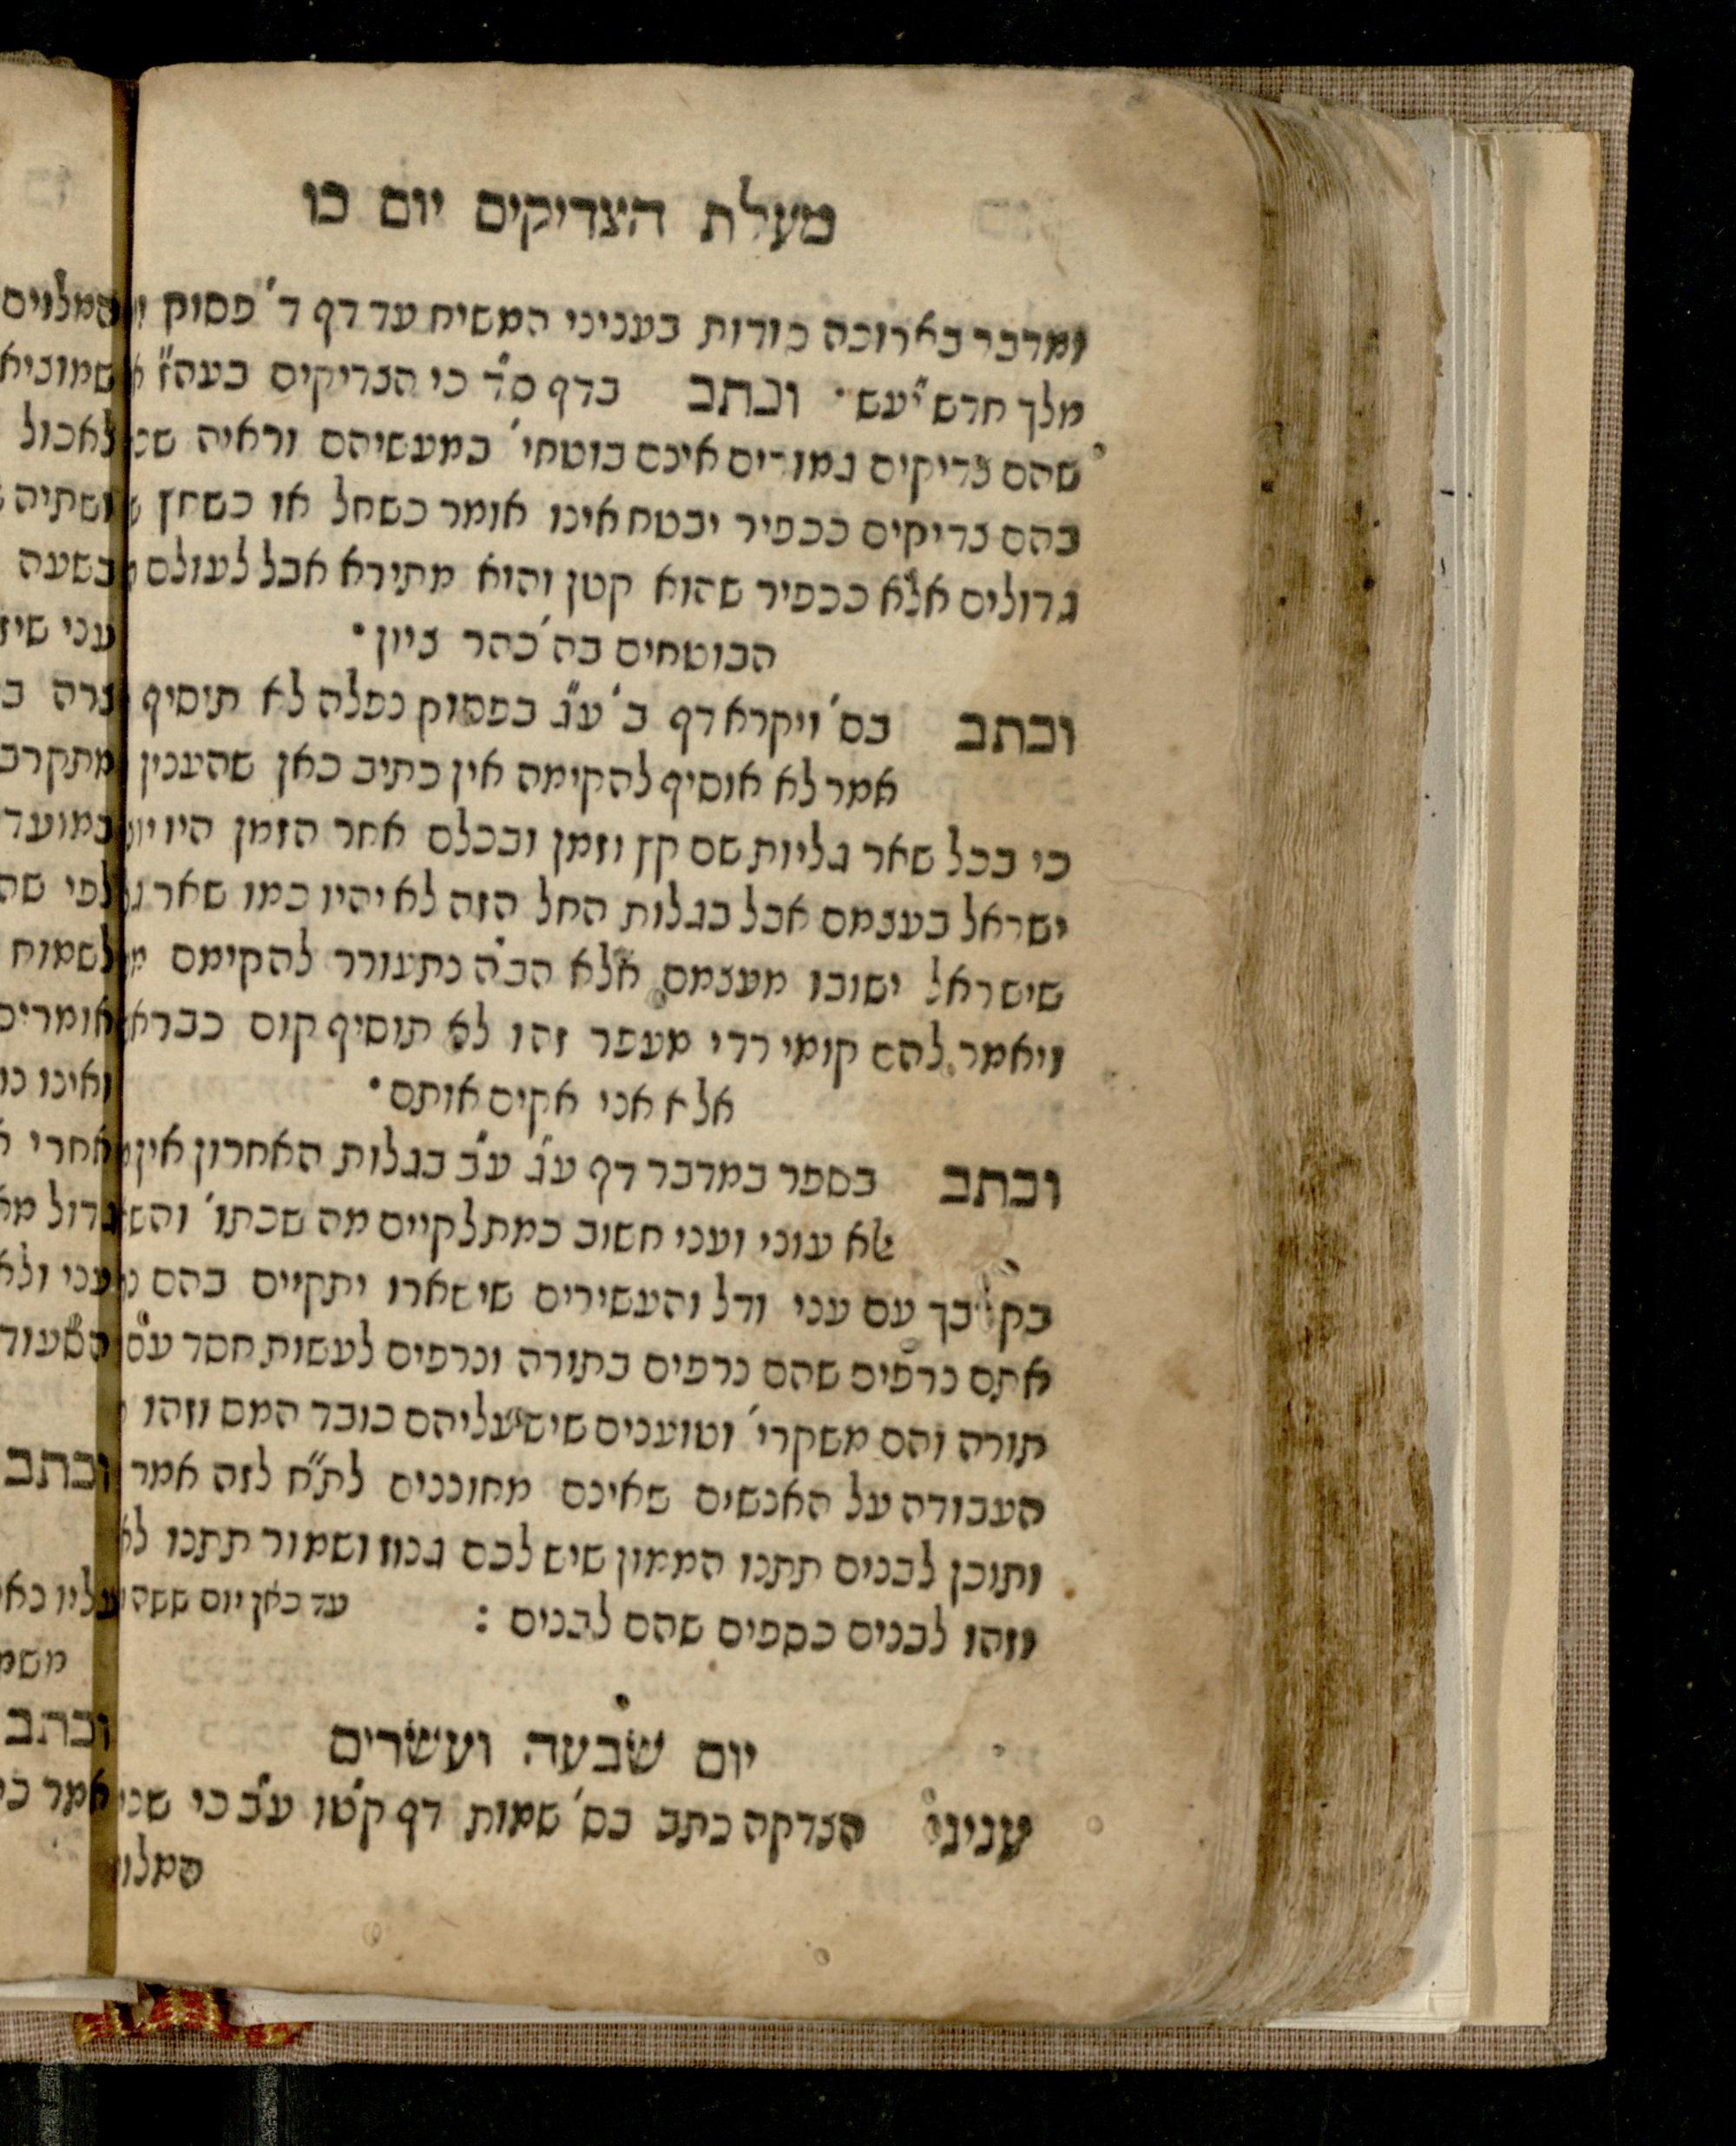 מעלת הצדיקים יום כו
ומדבר בארוכה כודות בענייני המשיח עד דף ד' פסוק
מלך חדש י"עש· וכתב בדף ס"ד כי הצדיקים בעה"ז
שהם צדיקים גמורים אינם בוטחי' במעשיהם וראיה
בהם צדיקים ככפיר יבטח אינו אומר כשחל או כשחץ
גדולים אלא ככפיר שהוא קטן והוא מתירא אבל לעולם
הבוטחים בה' כהר ציון·
וכתב בס' ויקרא דף ב' ע"ג בפסוק נפלה לא תוסיף
אמר לא אוסיף להקימה אין כתיב כאן שהענין
כי בכל שאר גליות שם קץ וזמן ובכלם אחר הזמן היו
ישראל בעצמם אבל בגלות החל הזה לא יהיו כמו שאר
שישראל ישובו מעצמם אלא הב"ה נתעורר להקימם
ויאמר להם קומי רדי מעפר זהו לא תוסיף קום
אלא אני אקים אותם·
וכתב בספר במדבר דף ע"ג ע"ב בגלות האחרון אין
אלא עוני ועני חשוב כמת לקיים מה שכתו'
בקרבך עם עני ודל והעשירים שישארו יתקיים בהם
אתם נרפים שהם נרפים בתורה ונרפים לעשות חסד עם
תורה והם משקרי' וטוענים שיש עליהם כובד המס וזהו
העבודה על האנשים שאינם מחוננים לת"ח לזה אמר
ותוכן לבנים תתנו הממון שיש לכם גנוז ושמור תתנו
וזהו לבנים כספים שהם לבנים : עד כאן יום ששה
יום שבעה ועשרים
ענייני הצדקה כתב בס' שמות דף קטו ע"ב כי
המלוי
המלוים
שמוניא
לאכול
ושתיה
בשעה
עני
צרה
מתקרב
במועד
לפי
לשמוח
אומרים
ואינו
אחרי
גדול
עני ולא
וכתב
עליו
וכתב
אמר